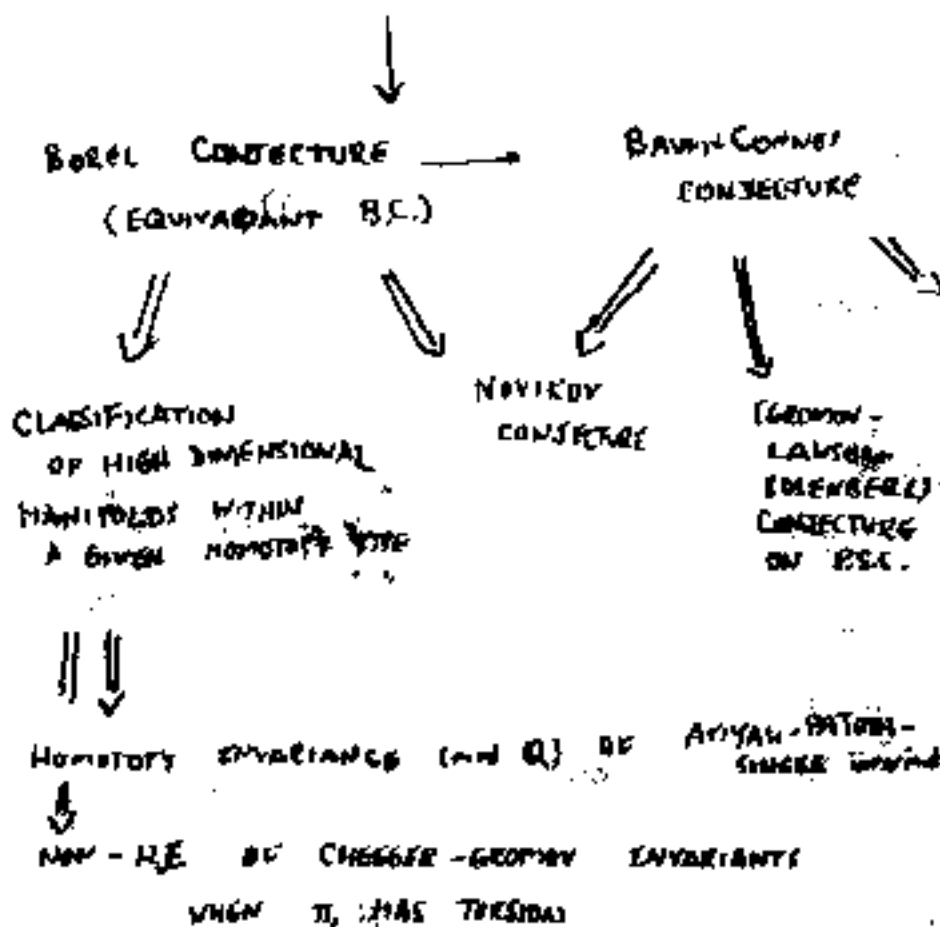 BOREL CONJECTURE
(EQUIVARIANT B.C.)
BAUM-CONNES
CONJECTURE
CLASSIFICATION
OF HIGH DIMENSIONAL
MANIFOLDS WITHIN
A GIVEN HOMOTOPY TYPE
NOVIKOV
CONJECTURE
(GROMOV-
LAWSON-
ROSENBERG)
CONJECTURE
ON P.S.C.
HOMOTOPY INVARIANCE (mod Q) OF ATIYAH-PATODI-
SINGER
NON-H.E. OF CHEEGER-GROMOV INVARIANTS
WHEN π₁ HAS TORSION